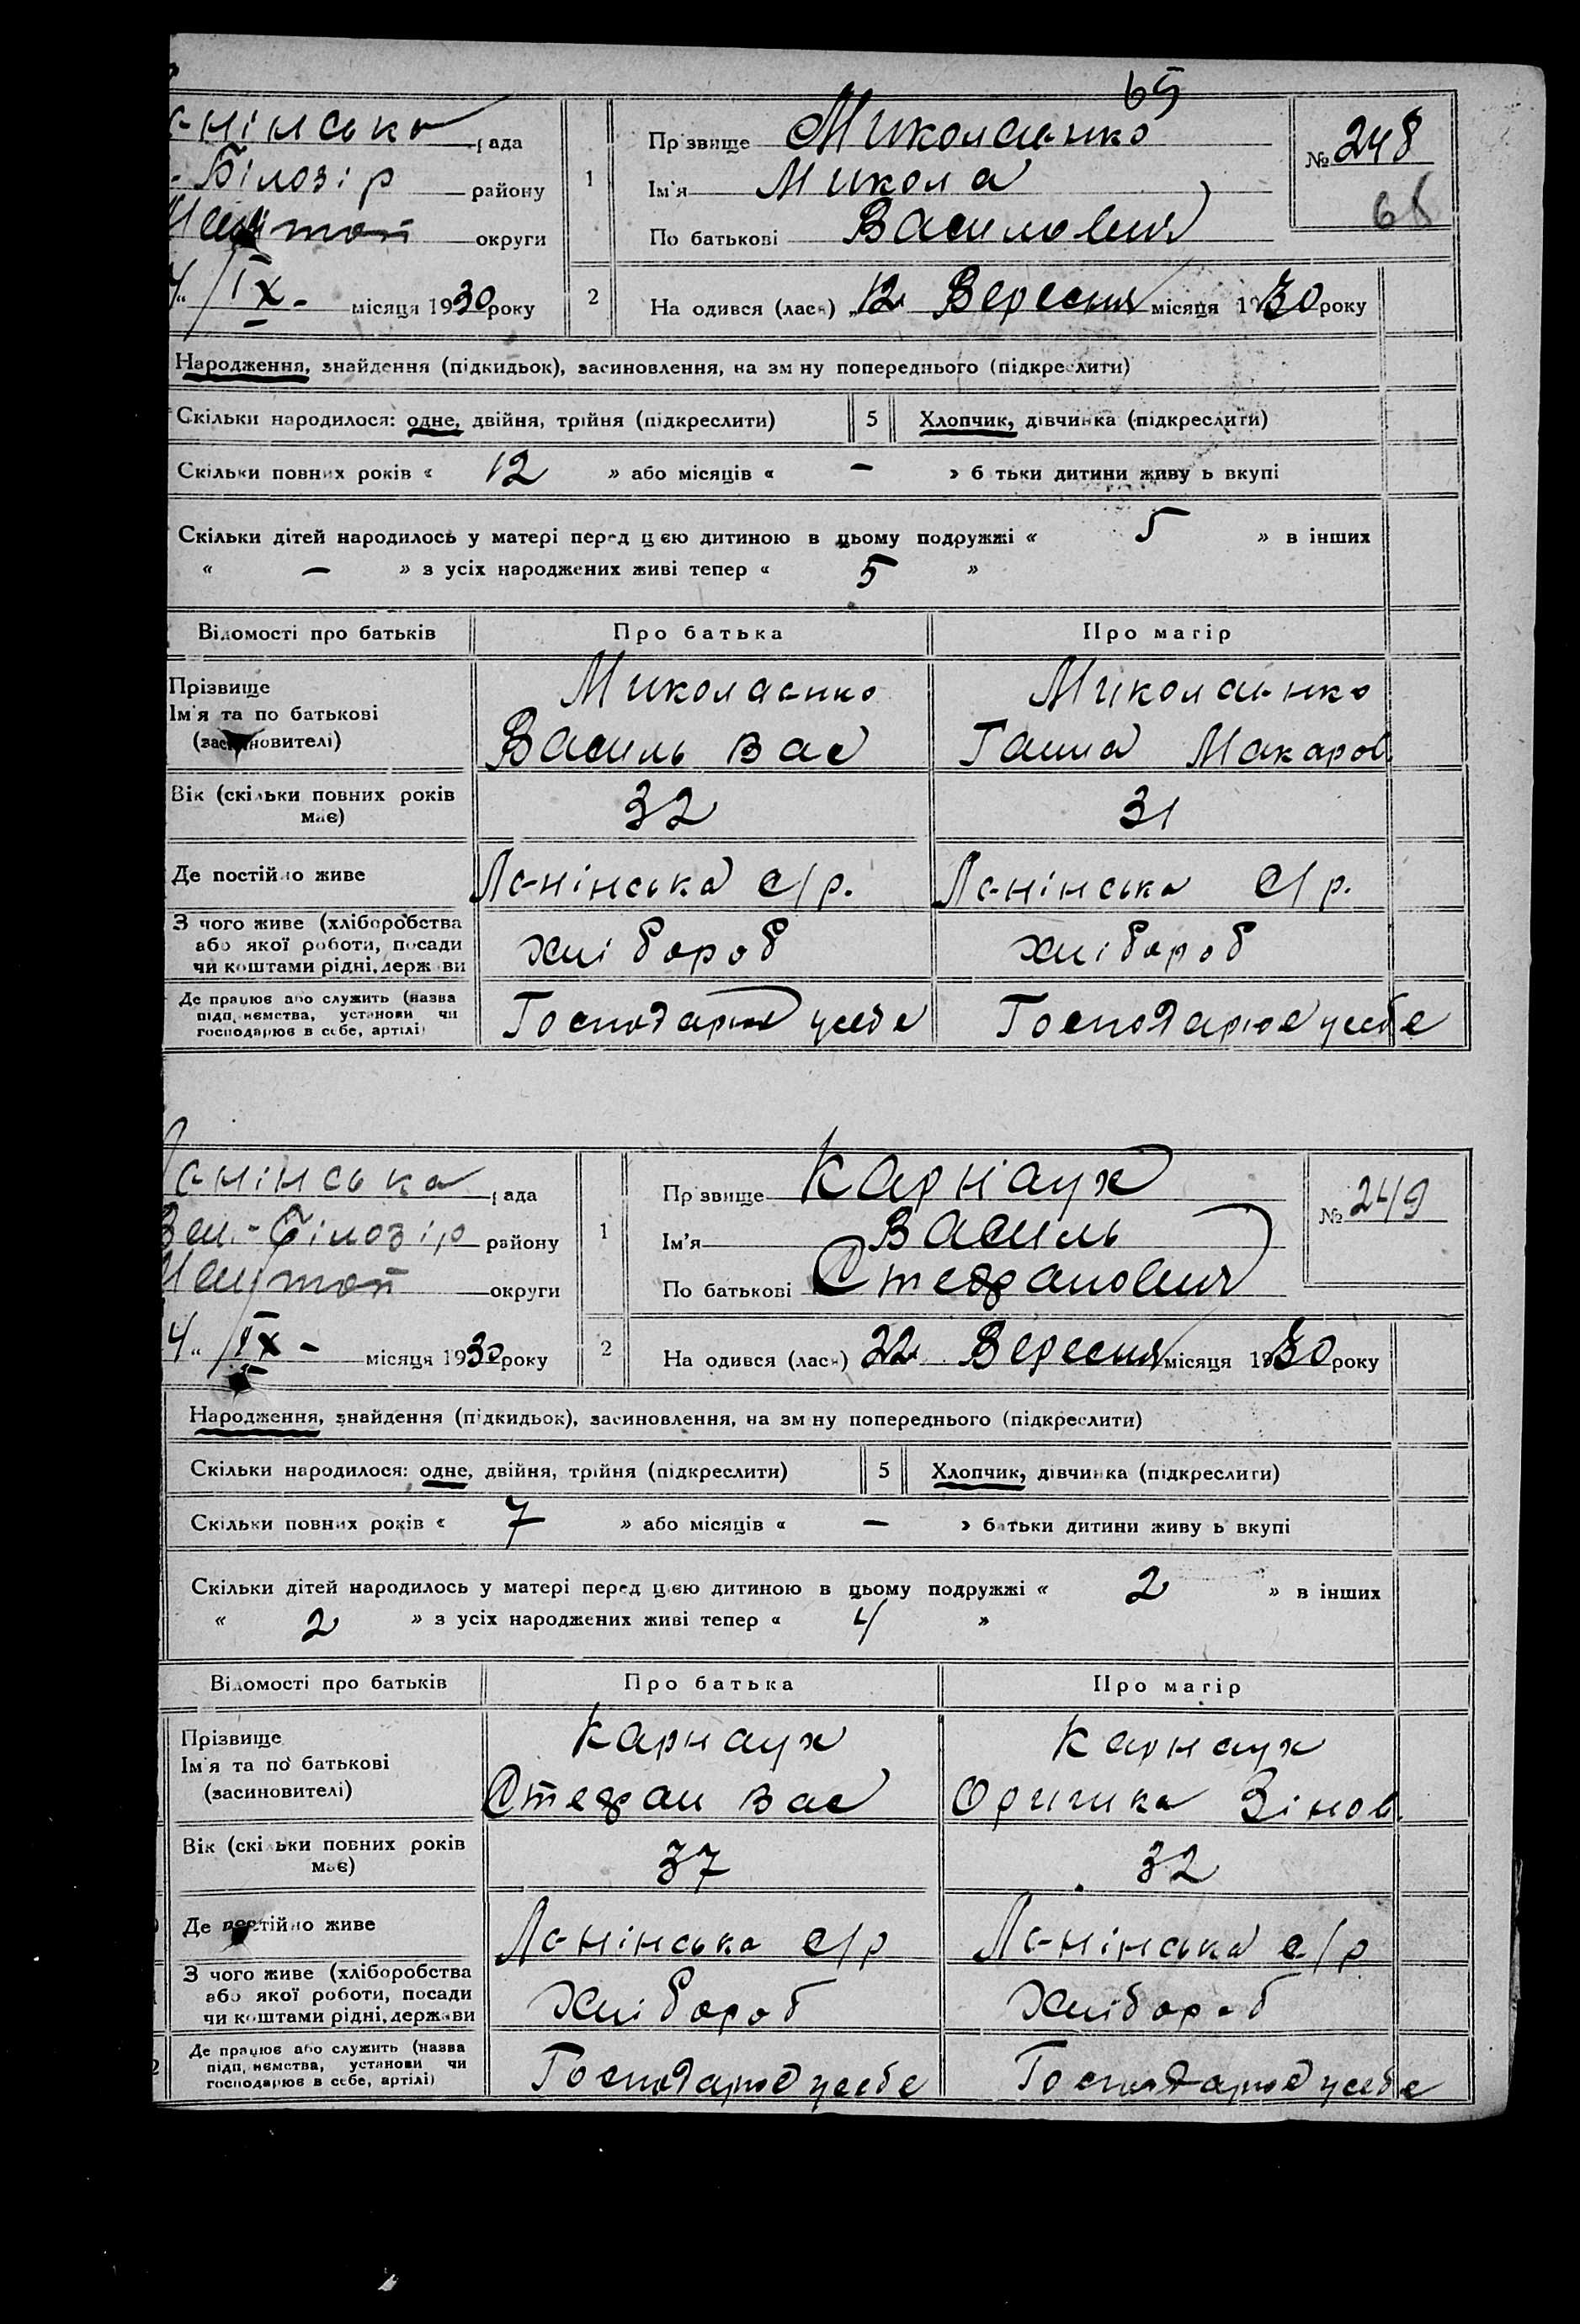 65
Ленінська рада
Білозір району
округи
ІХ - місяця 1930 року
1
Прізвище Миколаєнко
Ім'я Микола
По батькові Васильович
№ 248
68
2
На одився (лася) „12 Вересня місяця 1930 року
Народження, знайдення (підкидьок), засиновлення, на зм ну попереднього (підкреслити)
Скільки народилося: одне, двійня, трійня (підкреслити) 5 Хлопчик, дівчинка (підкреслити)
Скільки повних років « 12 » або місяців « – » б тьки дитини живу ь вкупі
Скільки дітей народилось у матері перед цією дитиною в цьому подружжі « 5 » в інших
« – » з усіх народжених живі тепер « 5 »
Відомості про батьків Про батька Про матір
Прізвище Миколаєнко Миколаєнко
Ім'я та по батькові
(засиновителі) Василь Вас Ганна Макаров.
Вік (скільки повних років
має) 32 31
Де постійно живе Ленінська с/р. Ленінська с/р.
З чого живе (хліборобства
або якої роботи, посади
чи коштами рідні, держ ви хлібороб хлібороб
Де працює або служить (назва
підп, ємства, установи чи
господарює в себе, артілі) Господарює у себе Господарює у себе
Ленінська рада
Вел.-Білозір району
округи
4„ ІХ - місяця 1930 року
1
Прізвище Карнаух
Ім'я Василь
По батькові Стефанович
№ 249
2
На одився (лася) 22 Вересня місяця 1930 року
Народження, знайдення (підкидьок), засиновлення, на зм ну попереднього (підкреслити)
Скільки народилося: одне, двійня, трійня (підкреслити) 5 Хлопчик, дівчинка (підкреслити)
Скільки повних років « 7 » або місяців « – » батьки дитини живу ь вкупі
Скільки дітей народилось у матері перед цією дитиною в цьому подружжі « 2 » в інших
« 2 » з усіх народжених живі тепер « 4 »
Відомості про батьків Про батька Про матір
Прізвище Карнаух Карнаух
Ім'я та по батькові
(засиновителі) Стефан Вас Оришка Зінов.
Вік (скільки повних років
має) 37 32
Де постійно живе Ленінська с/р Ленінська с/р
З чого живе (хліборобства
або якої роботи, посади
чи коштами рідні, держави Хлібороб Хлібороб
Де працює або служить (назва
підп, ємства, установи чи
господарює в себе, артілі) Господарює у себе Господарює у себе